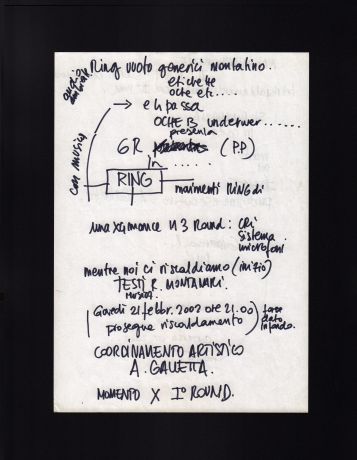 Ring vuoto generici montatino.
audio
ambiente
etichette
oche etc.....
e li passa
OCHE B underwer......
presenta
GR (P.P.)
In .....
con musica
RING
movimenti RING di
una x4 monce N 3 Round: chi
sistema
microfoni
mentre noi ci riscaldiamo (inizio)
TESTI R. MONTANARI.
musica
(Giovedì 21 febbr. 2002 ore 21.00)
prosegue riscaldamento)
fare
dato
in fondo.
COORDINAMENTO ARTISTICO
A. GALLETTA.
MOMENTO X I° ROUND.